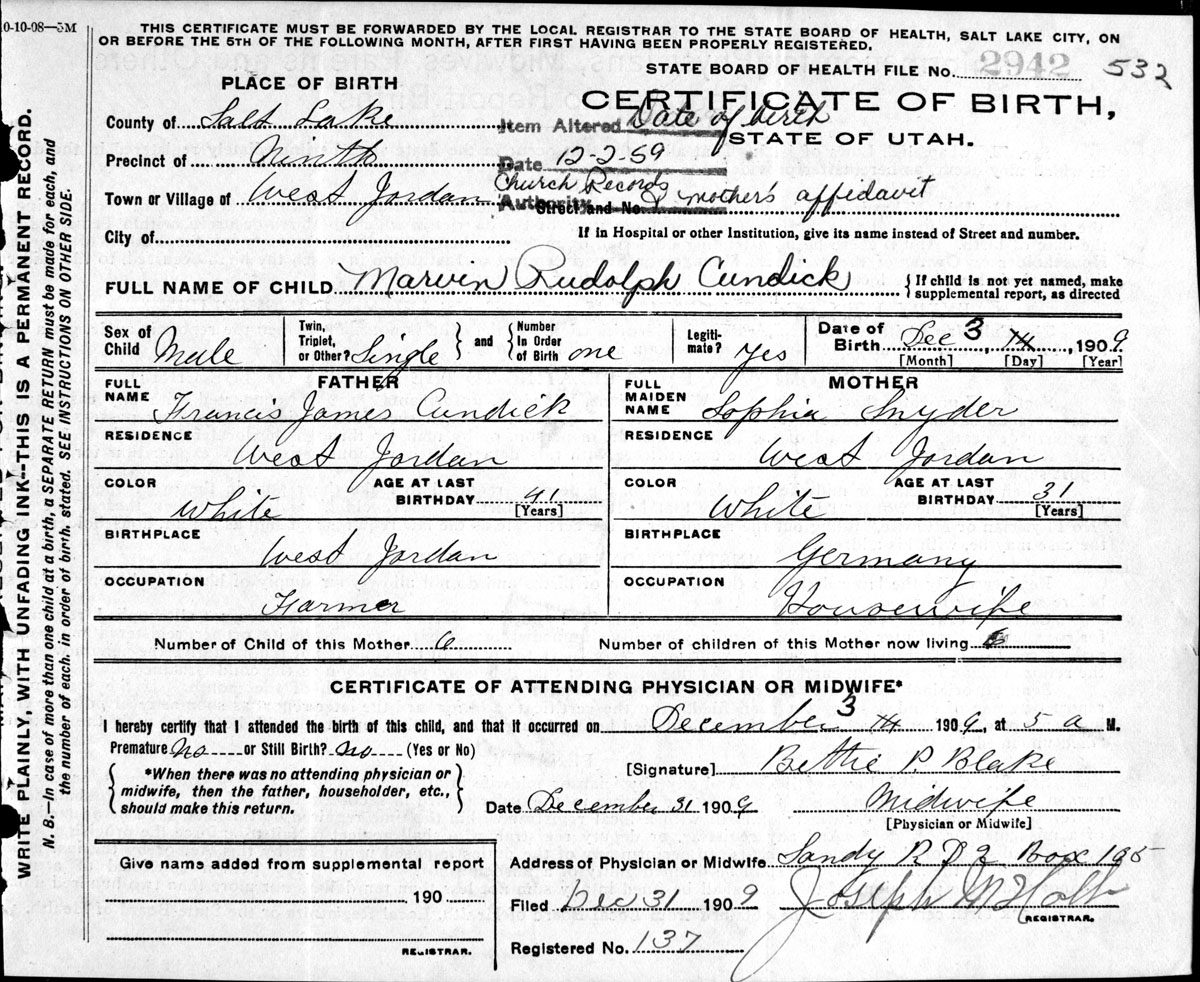 0-10-08—5M
THIS CERTIFICATE MUST BE FORWARDED BY THE LOCAL REGISTRAR TO THE STATE BOARD OF HEALTH, SALT LAKE CITY, ON
OR BEFORE THE 5TH OF THE FOLLOWING MONTH, AFTER FIRST HAVING BEEN PROPERLY REGISTERED.
STATE BOARD OF HEALTH FILE No. 2942 532
PLACE OF BIRTH
CERTIFICATE OF BIRTH,
STATE OF UTAH.
County of Salt Lake
Item Altered Date of birth
Precinct of Ninth
Date 12-2-59
Town or Village of West Jordan
Church Records
Authority & mother's affidavit
Street and No.
City of
If in Hospital or other Institution, give its name instead of Street and number.
FULL NAME OF CHILD Marven Rudolph Cundick
{If child is not yet named, make
supplemental report, as directed
Sex of Child Male
Twin, Triplet, or Other? Single } and { Number In Order of Birth one
Legiti-mate? yes
Date of Birth Dec 3, 14, 1909
[Month] [Day] [Year]
FATHER
FULL NAME Francis James Cundick
RESIDENCE West Jordan
COLOR White
AGE AT LAST BIRTHDAY 41 [Years]
BIRTHPLACE West Jordan
OCCUPATION Farmer
MOTHER
FULL MAIDEN NAME Sophia Snyder
RESIDENCE West Jordan
COLOR White
AGE AT LAST BIRTHDAY 31 [Years]
BIRTHPLACE Germany
OCCUPATION Housewife
Number of Child of this Mother 6
Number of children of this Mother now living 6
CERTIFICATE OF ATTENDING PHYSICIAN OR MIDWIFE*
I hereby certify that I attended the birth of this child, and that it occurred on December 3 14 1909, at 5 a M.
Premature No or Still Birth? No (Yes or No)
{*When there was no attending physician or
midwife, then the father, householder, etc.,
should make this return.}
[Signature] Bettie P. Blake
Date December 31 1909
Midwife
[Physician or Midwife]
Give name added from supplemental report
190
REGISTRAR.
Address of Physician or Midwife Sandy R D 2 Box 195
Filed Dec 31 1909
Joseph M Holt
REGISTRAR.
Registered No. 137
WRITE PLAINLY, WITH UNFADING INK--THIS IS A PERMANENT RECORD.
N. B.—In case of more than one child at a birth, a SEPARATE RETURN must be made for each, and
the number of each, in order of birth, stated. SEE INSTRUCTIONS ON OTHER SIDE.